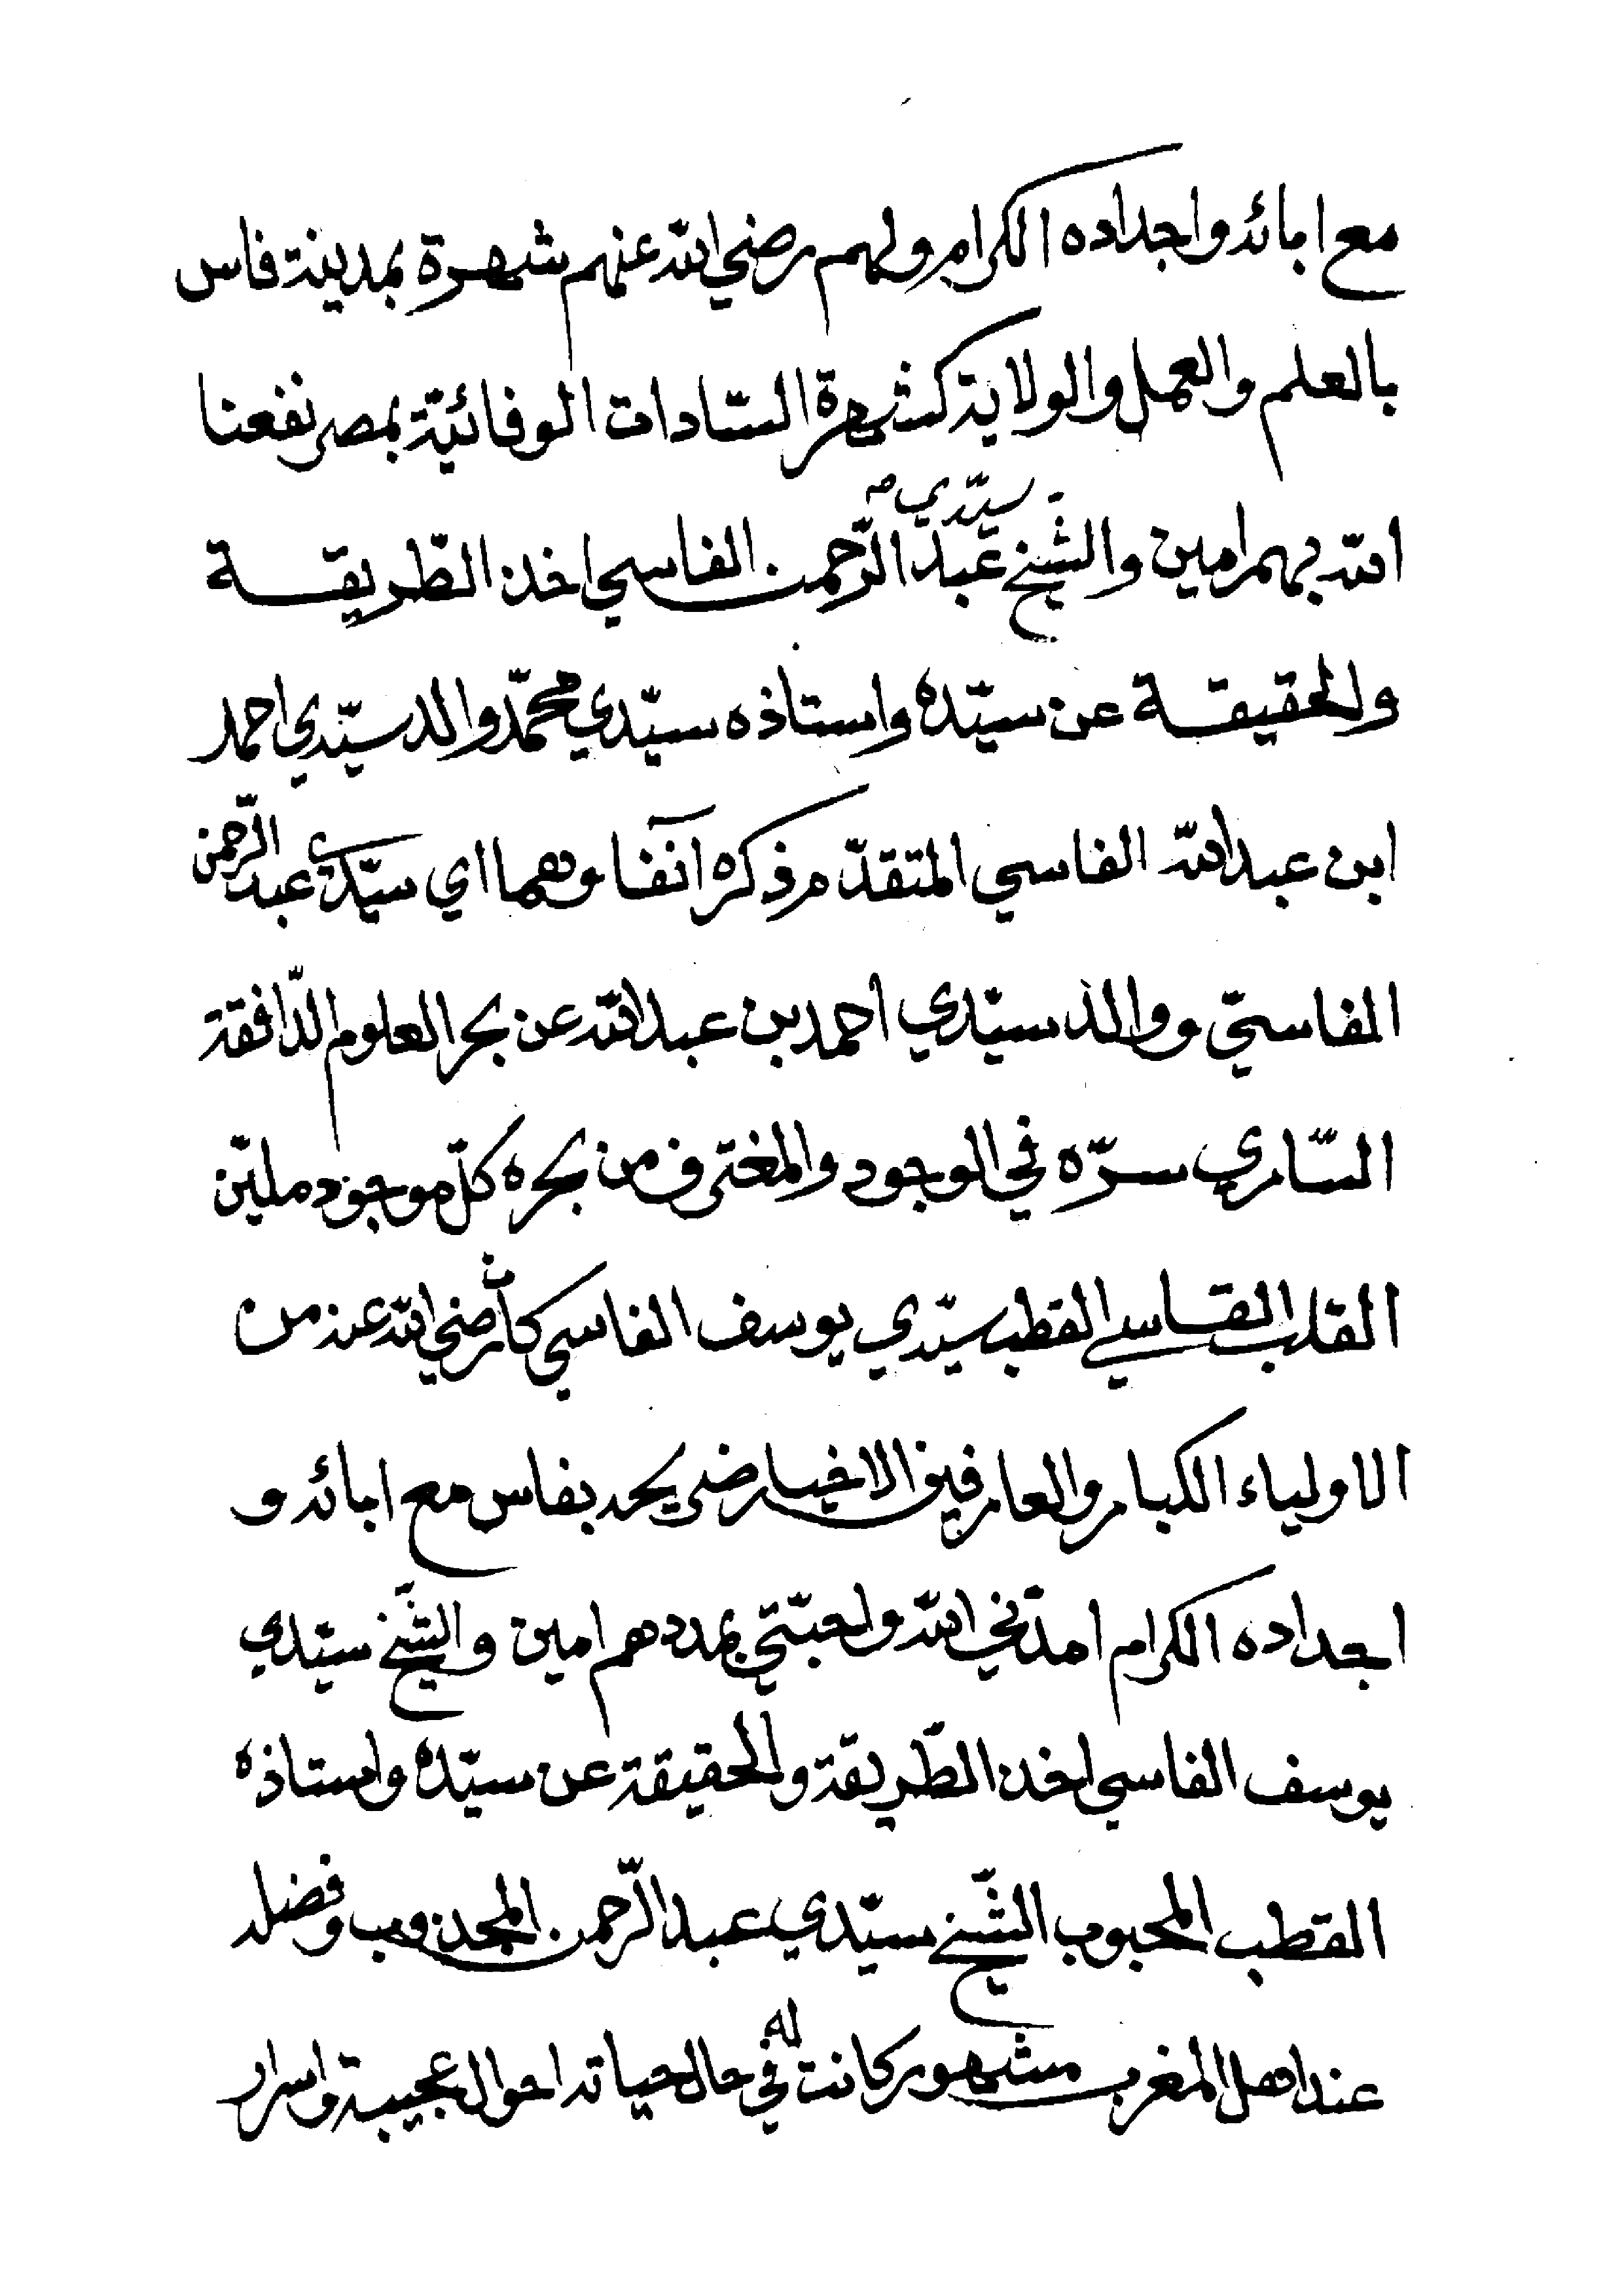 مع ابائه واجداده الكرام ولهم رضي الله عنهم شهرة بمدينة فاس
بالعلم والعمل والولاية كشهرة السّادات الوفائيّة بمصر نفعنا
الله بهم امين والشّيخ سيّدي عبد الرّحمن الفاسي اخذ الطّريقة
والحقيقة عن سيّده واستاذه سيّدي محمّد والد سيّدي احمد
ابن عبد الله الفاسي المتقدّم ذكره آنفا وهما اي سيّدي عبد الرّحمن
الفاسيّ ووالد سيّدي احمد بن عبد الله عن بحر العلوم الدّافقة
السّاري سرّه في الوجود والمغترف من بحره كلّ موجود مليّن
القلب القاسي القطب سيّدي يوسف الفاسي كان رضي الله عنه من
الاولياء الكبار والعارفين الاخيار ضريحه بفاس مع ابائه و
اجداده الكرام امدّني الله واحبّتي بمددهم امين والشّيخ سيّدي
يوسف الفاسي اخذ الطّريقة والحقيقة عن سيّده واستاذه
القطب المحبوب الشّيخ سيّدي عبد الرّحمن المجذوب وفضله
عند اهل المغرب مشهور كانت له في حال حياته احوال عجيبة واسرار